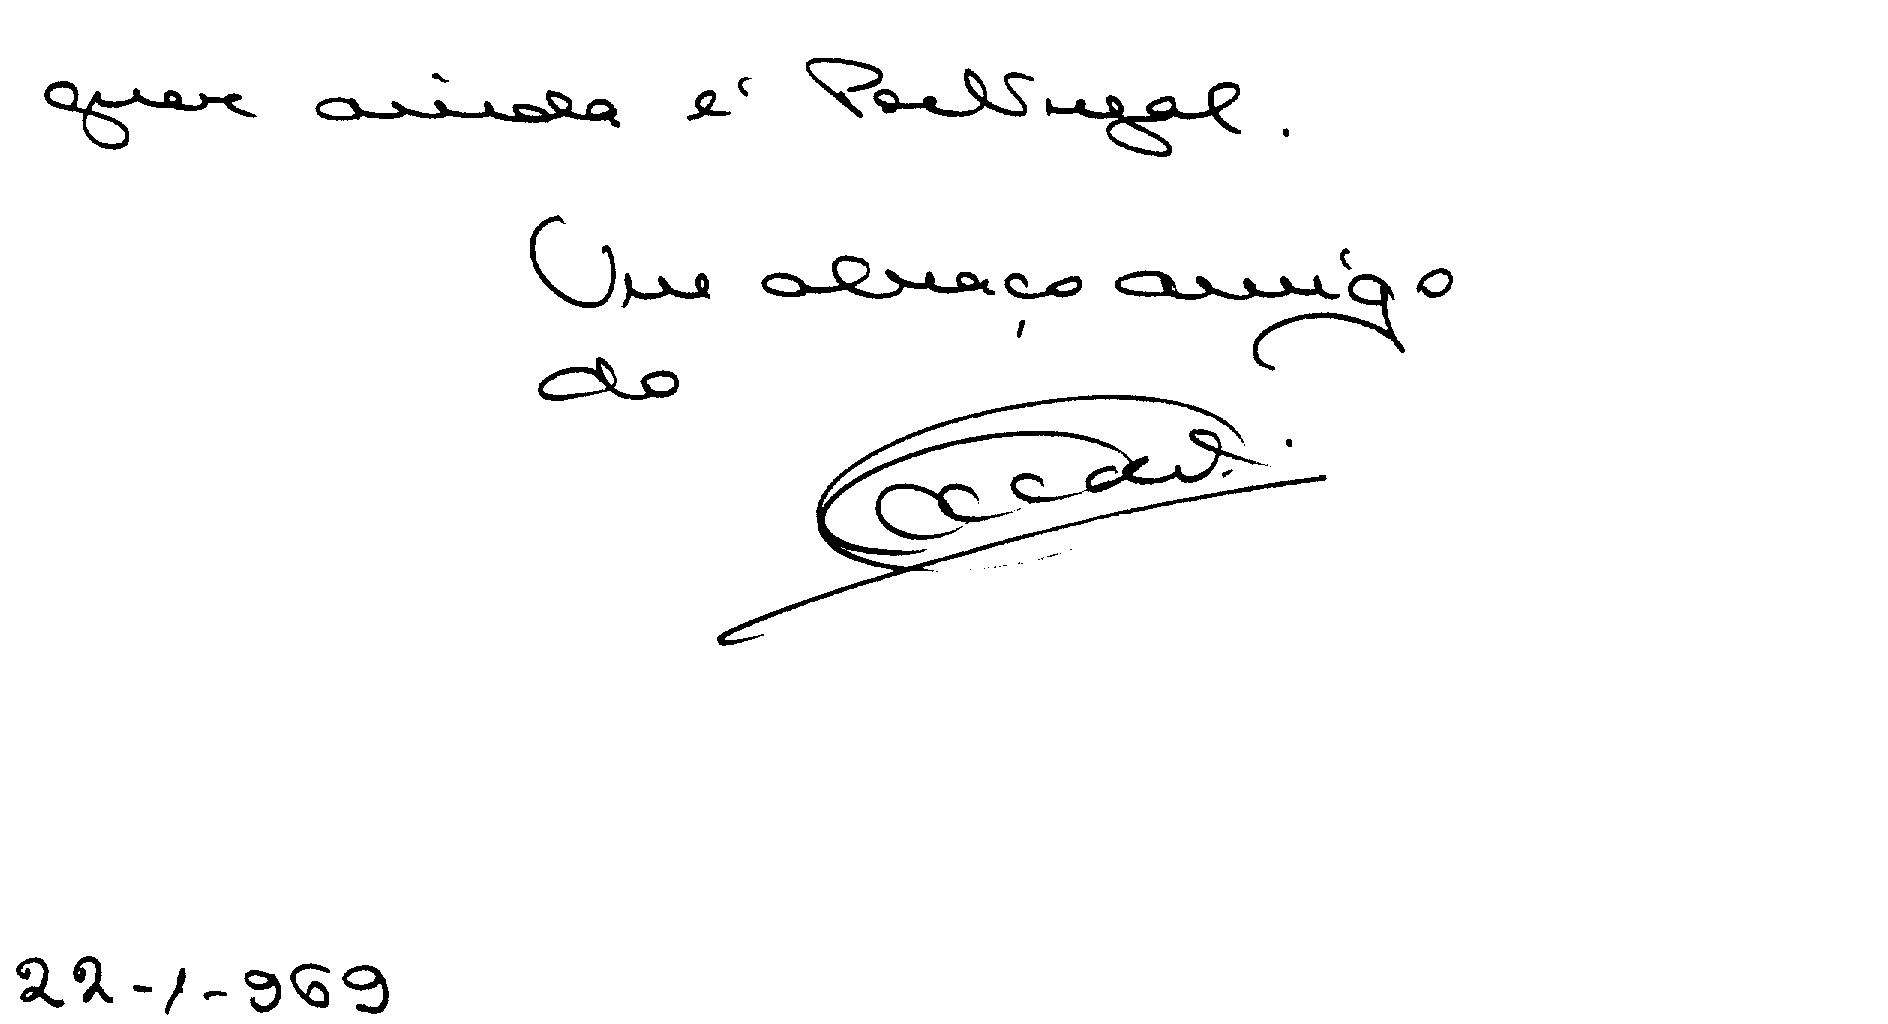 quer ainda é Portugal.
Um abraço amigo
do
22-1-969